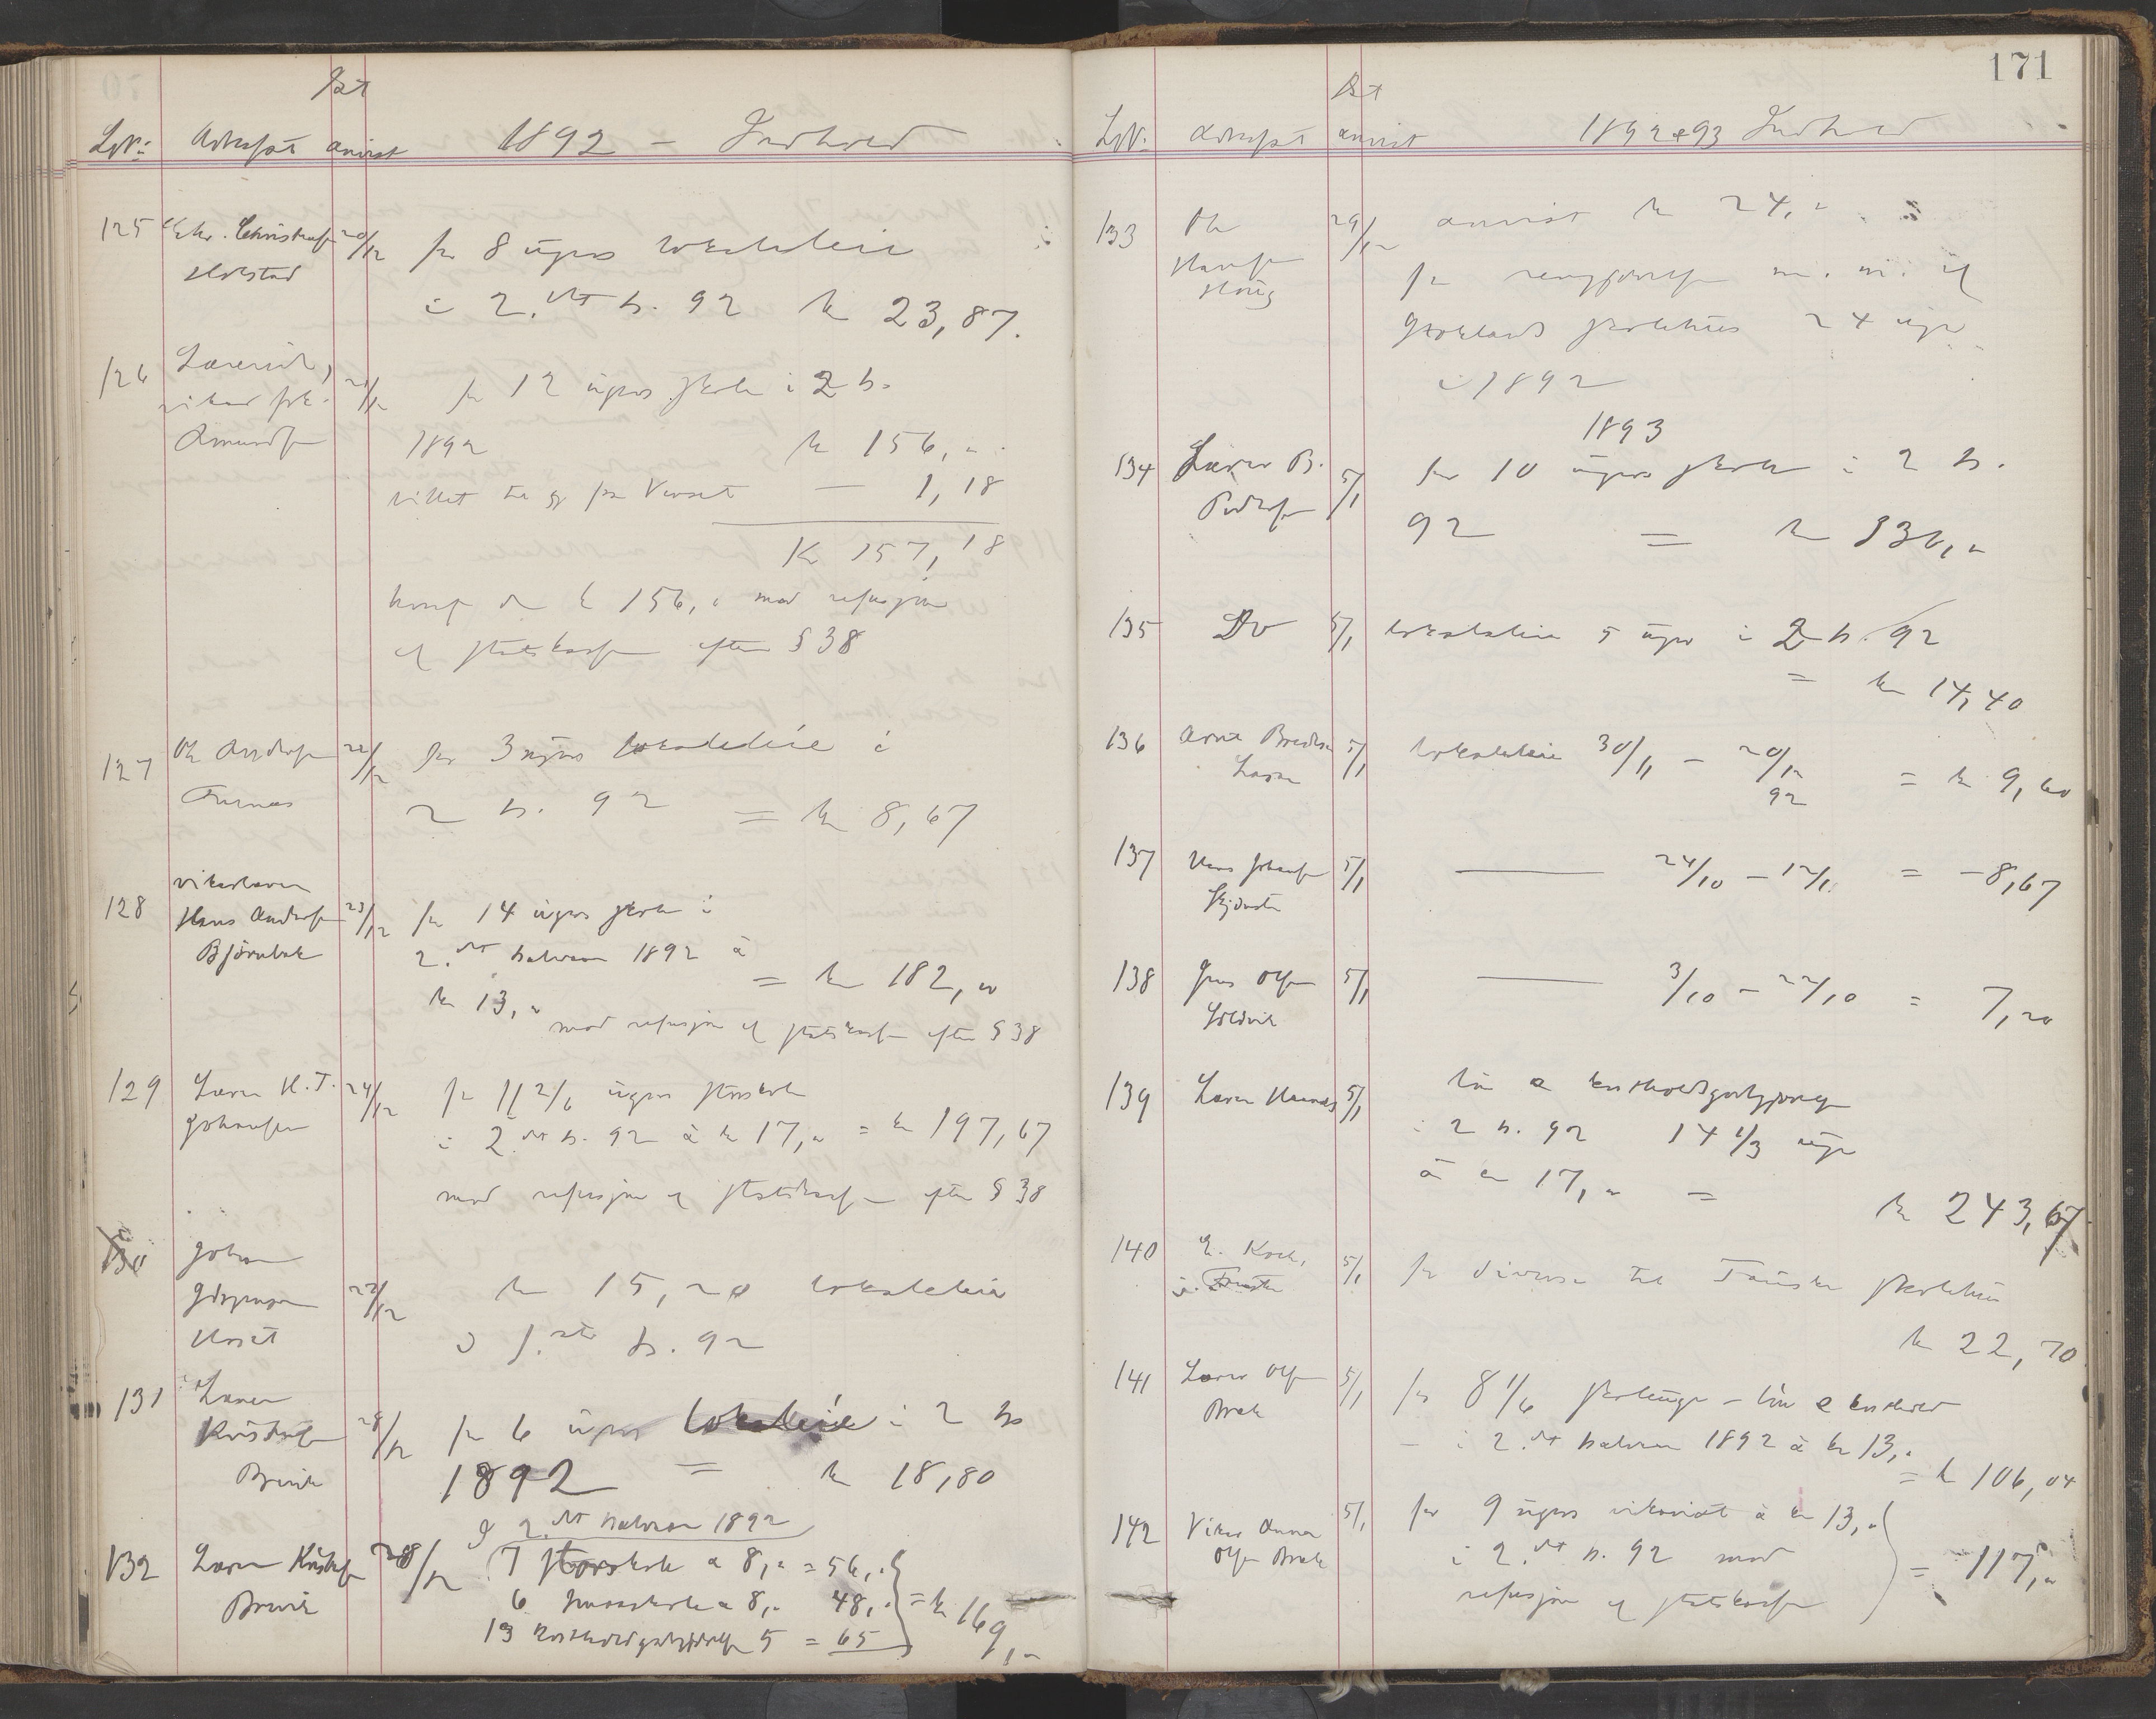 1892 - Indhold
LNr: Adressat anvist
125 Chr. Christensen 20/12 for 8 ugers lokalleie
Holstad
i 2.det h. 92 kr 23,87.
126 Lærerinde,
vikar frk. 21/12 for 12 ugers skole i 2 h.
Amundsen 1892 kr 156,"
1,18
Kr 157,18
kr 156,- mod refusjon
af statskassen efter § 38
127 Ole Andersen 22/12 for 3 ugers lokalleie i
Furnes 2 h. 92 = kr 8,67
128 vikarlærer
Hans Andersen 23/12 for 14 ugers skole i
Bjørnbak 2.det halvaar 1892 à
kr 13,- = kr 182,00
mod refusjon af statskassen efter § 38
129 Lærer H. T. 24/12 for 11 2/6 ugers storskole
Johansen i 2.det h. 92 à kr 17,- = kr 197,67
mod refusjon af statskassen efter § 38
130 Johan
27/12 kr 15,20 lokalleie
h. 92
131 Lærer
Kristensen 28/12 for 6 ugers lokalleie i 2 h
Brevik 1892 = kr 18,80
I 2.det halvaar 1892
132 Lærer Kristensen 28/12 7 storskole a 8,- = 56,-
Brevik 6 smaaskole a 8,- 48,- = kr 169,-
13 kostholdsgodtgjørelse 5 = 65
171
1892 & 93 Indhold
LNr. Adressat anvist
133 Ole 29/12 anvist kr 24,-
Hansen for rengjørelse m. m. af
Haug skolehus 24 uger
i 1892
1893
134 Lærer B. 5/1 for 10 ugers skole i 2 h.
Pedersen 92 = kr 130,-
135 Do 5/1 lokalleie 5 uger i 2 h. 92
= kr 14,40
136 Arne 5/1 lokalleie 30/11 - 20/12 = kr 9,60
92
137 Hans Johansen 5/1 — 24/10 - 12/11 = - 8,67
138 Jens Olsen 5/1 — 3/10 - 22/10 = 7,20
139 Lærer 5/1 løn & kostholdsgodtgjørelse
i 2 h. 92 14 1/3 uge
à kr 17,- = kr 243,67
140 E. Koch, 5/1 for diverse til skolehus
kr 22,70
141 Lærer Olsen 5/1 for 8 1/6 skoleuge - løn & kosthold
Brek - i 2.det halvaar 1892 à kr 13,-
= kr 106,04
142 Vikar Anna 5/1 for 9 ugers vikariat à kr 13,-
Olsen Brek i 2.det h. 92 mod = 117,-
refusjon af statskassen